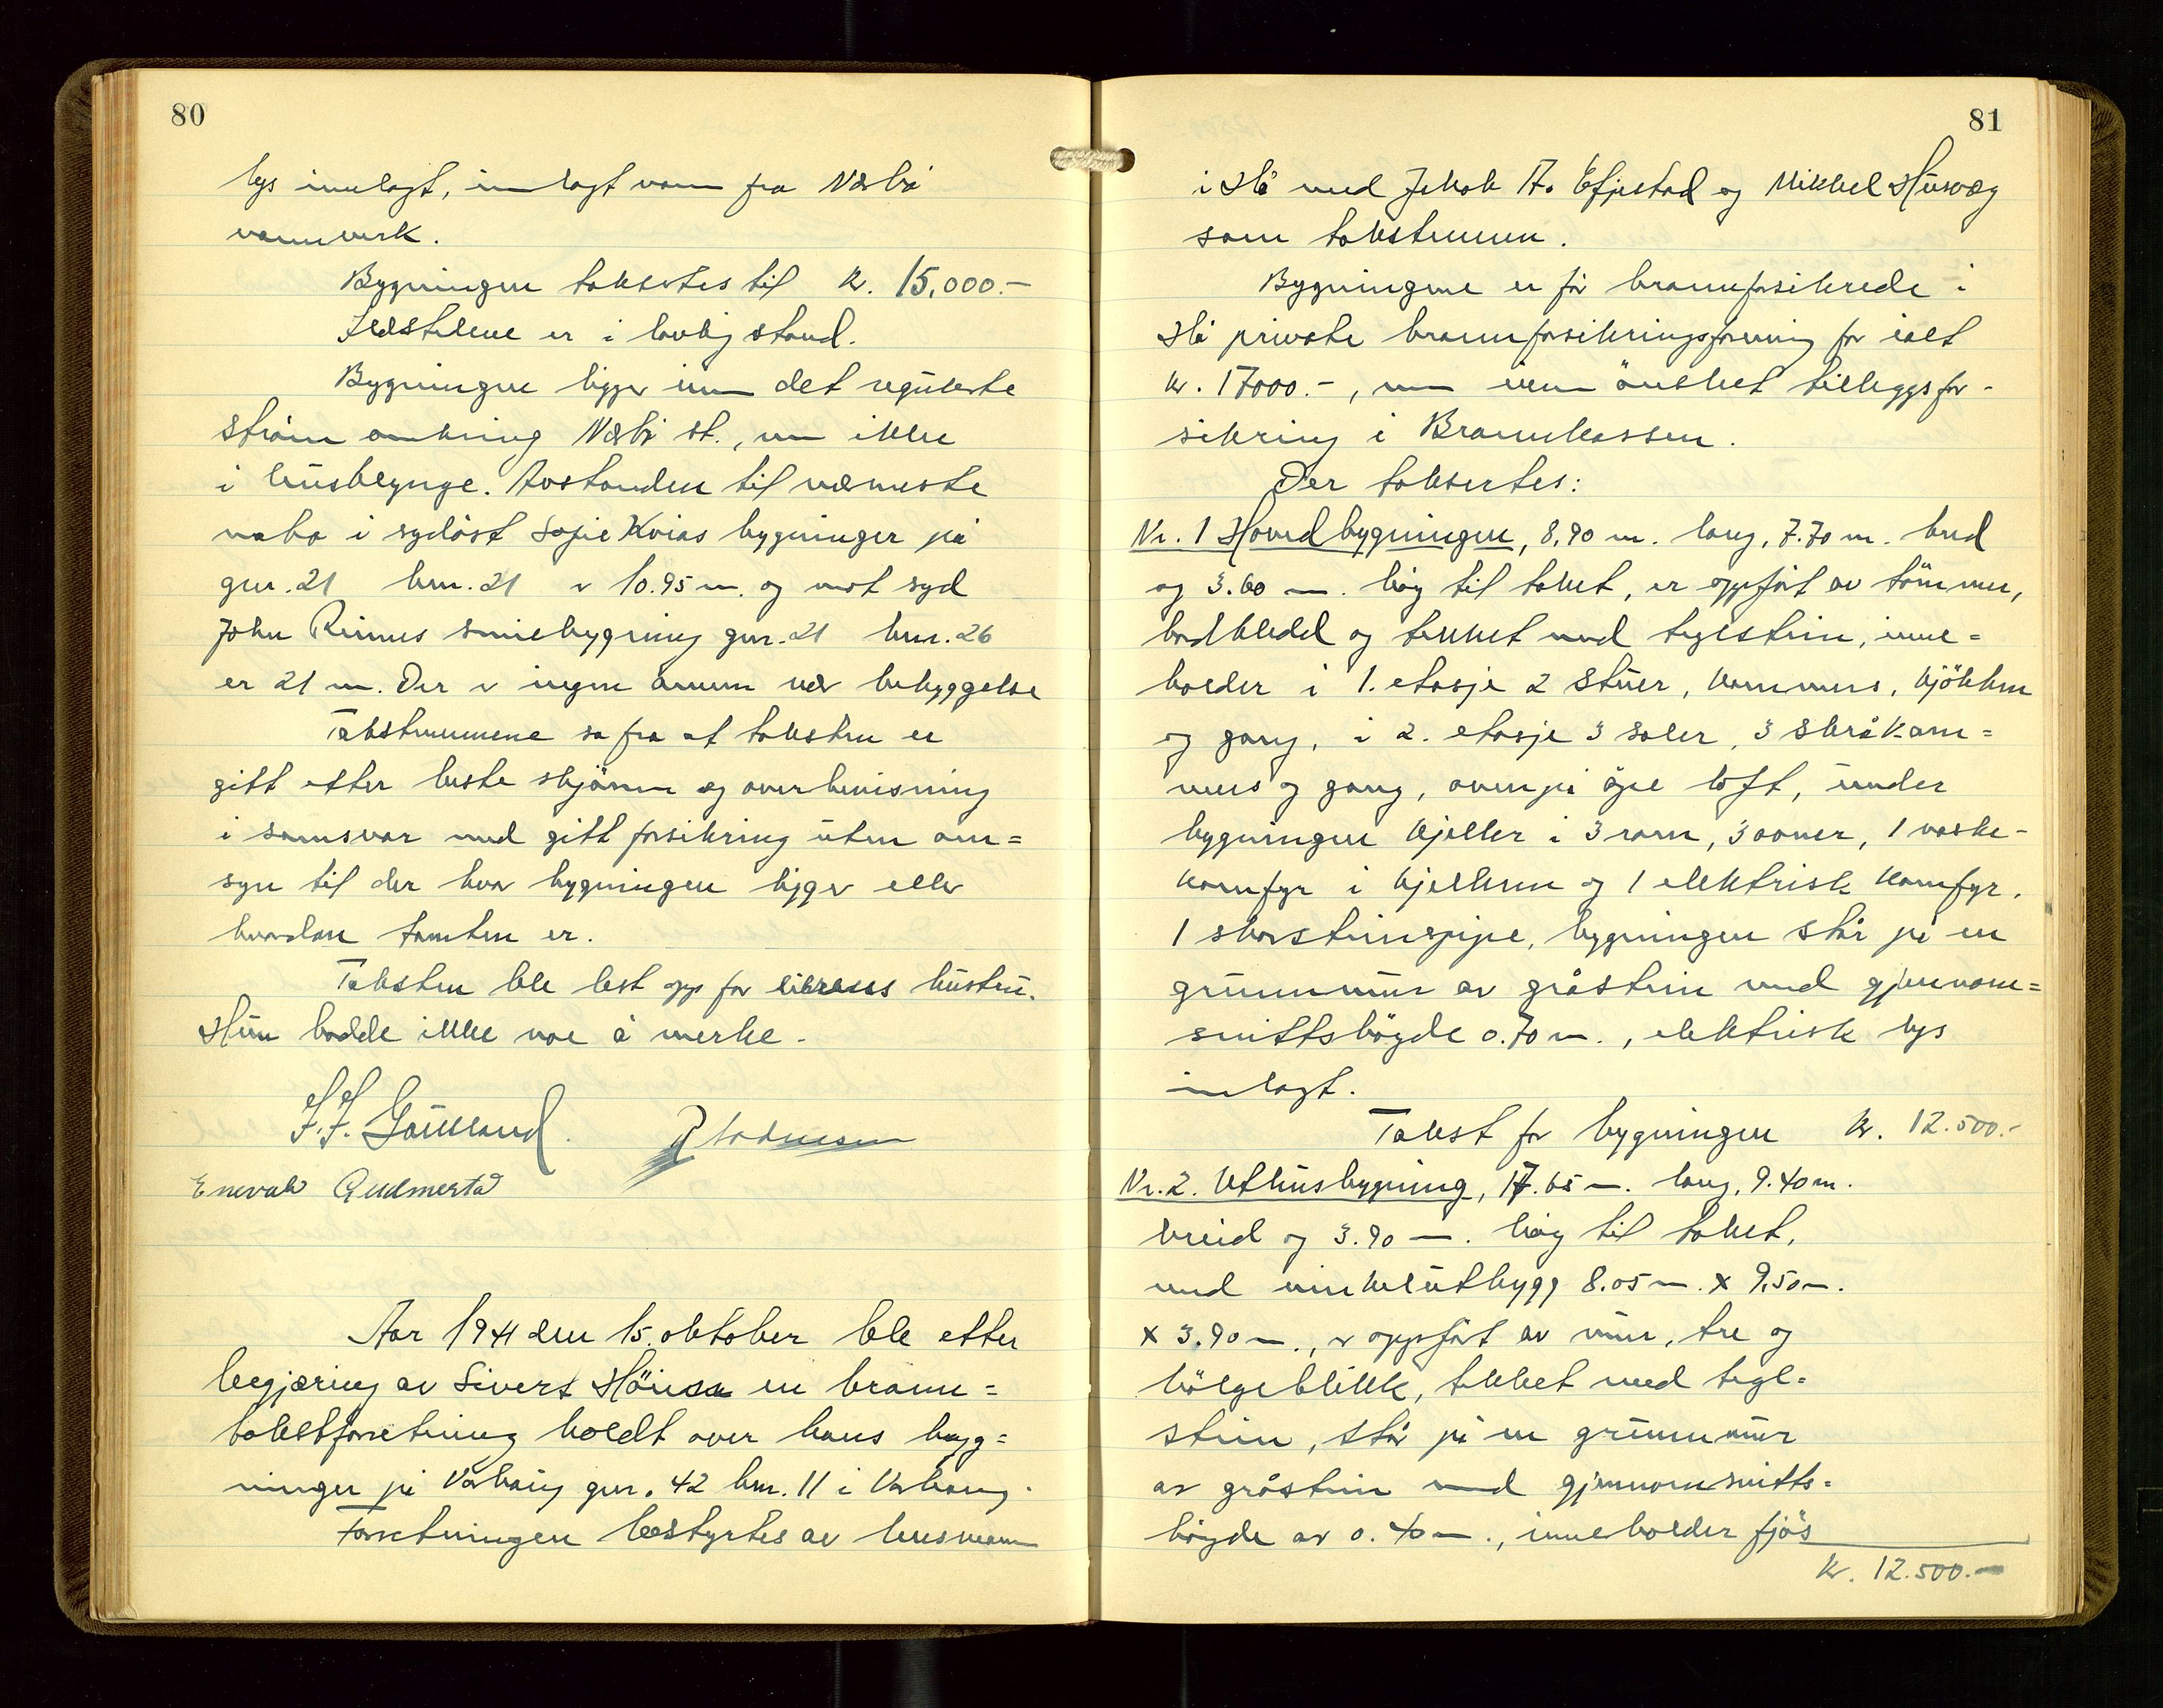 80
lys innlagt, innlagt vann fra Nærbø
vannverk.
Bygningen takstes til kr. 15,000.-
Ildstedene er i lovlig stand.
Bygningen ligger inn det regulerte
strøm omkring Nærbø st., men ikke
i husklynge. Avstanden til nærmeste
nabo i sydøst Sofie Kvias bygninger på
gnr. 21 bnr. 21 er 10.95 m. og mot syd
John Rimes smiebygning gnr. 21 bnr. 26
er 21 m. Der er ingen annen nær bebyggelse
Takstmennene sa fra at taksten er
gitt etter beste skjønn og overbevisning
i samsvar med gitt forsikring uten om=
syn til der hvor bygningen ligger eller
hvordan tomten er.
Taksten ble lest opp for eierens hustru.
Hun hadde ikke noe å merke.
F. F. Gaukland.
Enevald Gudmestad
Aar 1941 den 15. oktober ble etter
begjæring av Sivert Höiland en brann=
takstforretning holdt over hans bygg=
ninger på Varhaug gnr. 42 bnr. 11 i Varhaug.
Forretningen bestyrtes av lensmann
81
i Hå med Jakob A. Efjestad og Mikkel Husvæg
som takstmenn.
Bygningene er før brannforsikrede i
Hå private brannforsikringsforening for ialt
kr. 17000.-, men ønsket tilleggsfor-
sikring i Brannkassen.
Der takstes:
Nr. 1 Hovedbygningen, 8,90 m. lang, 7.70 m. bred
og 3.60 m. høg til taket, er oppført av tømmer,
bordkledd og tekket med teglstein, inne=
holder i 1. etasje 2 stuer, kammers, kjøkken
og gang, i 2. etasje 3 saler, 3 skråkam=
mers og gang, ovenpå åpe loft, under
bygningen kjeller i 3 rom, 3 ovner, 1 vaske-
komfyr i kjelleren og 1 elektrisk komfyr.
1 skorsteinspipe, bygningen står på en
grunnmur av gråstein med gjennom=
snittshøgde 0.70 m., elektrisk lys
innlagt.
Takst for bygningen kr. 12.500.-
Nr. 2. Uthusbygning, 17.65 m. lang, 9.40 m.
breid og 3.90 m. høg til taket,
med vinkelutbygg 8.05 m. x 9,50 m.
x 3.90 m., er oppført av mur, tre og
bølgeblikk, tekket med tegl=
stein, står på en grunnmur
av gråstein med gjennomsnitts=
høgde av 0.40 m., inneholder fjøs
kr. 12.500.-